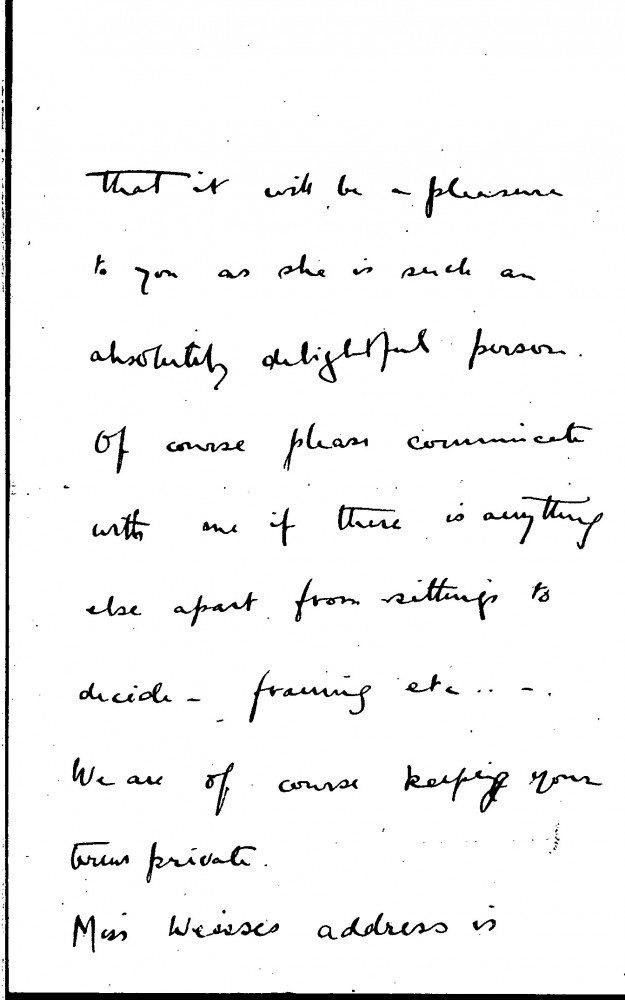 that it will be a pleasure
to you as she is such an
absolutely delightful person.
Of course please communicate
with me if there is anything
else apart from sittings to
decide - framing etc .. - .
We are of course keeping your
terms private.
Miss Weisses address is